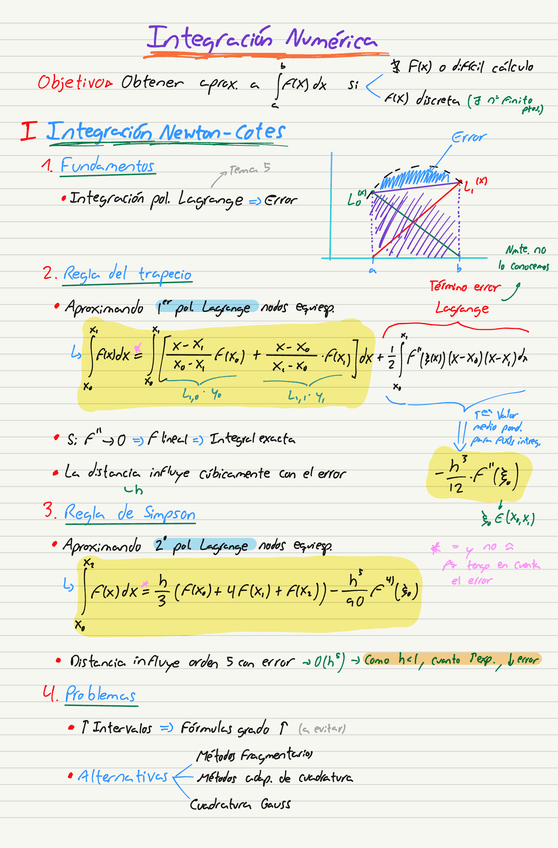 Integración Numérica
Objetivo▷ Obtener aprox. a ∫_a^b f(x)dx si
∄ F(x) o difícil cálculo
f(x) discreta (∃ nº finito ptos.)
I Integración Newton-Cotes
Error
1. Fundamentos
Tema 5
• Integración pol. Lagrange ⇒ Error
L₀(x)
L₁(x)
a b
Nmte. no
lo conocemos
2. Regla del trapecio
Término error
Lagrange
• Aproximando 1er pol Lagrange nodos equiesp.
↳ ∫_{x₀}^{x₁} f(x)dx =* ∫_{x₀}^{x₁} [ (x-x₁)/(x₀-x₁) f(x₀) + (x-x₀)/(x₁-x₀) · f(x₁) ] dx + 1/2 ∫_{x₀}^{x₁} f''(ξ(x))(x-x₀)(x-x₁)dx
L₁,₀ · y₀ L₁,₁ · y₁
• Si f'' → 0 ⇒ f lineal ⇒ Integral exacta
Tma Valor
medio pond.
para
• La distancia influye cúbicamente con el error
↳h
- h³/12 · f''(ξ₀)
ξ₀ ∈ (x₀,x₁)
3. Regla de Simpson
• Aproximando 2º pol Lagrange nodos equiesp.
* = y no ≈
pq tengo en cuenta
el error
↳ ∫_{x₀}^{x₂} f(x)dx =* h/3 (f(x₀) + 4f(x₁) + f(x₂)) - h⁵/90 f⁴⁾(ξ₀)
• Distancia influye orden 5 con error → O(h⁵) → Como h<1, cuanto ↑exp., ↓error
4. Problemas
• ↑ Intervalos ⇒ Fórmulas grado ↑ (a evitar)
• Alternativas
Métodos Fragmentarios
Métodos adap. de cuadratura
Cuadratura Gauss